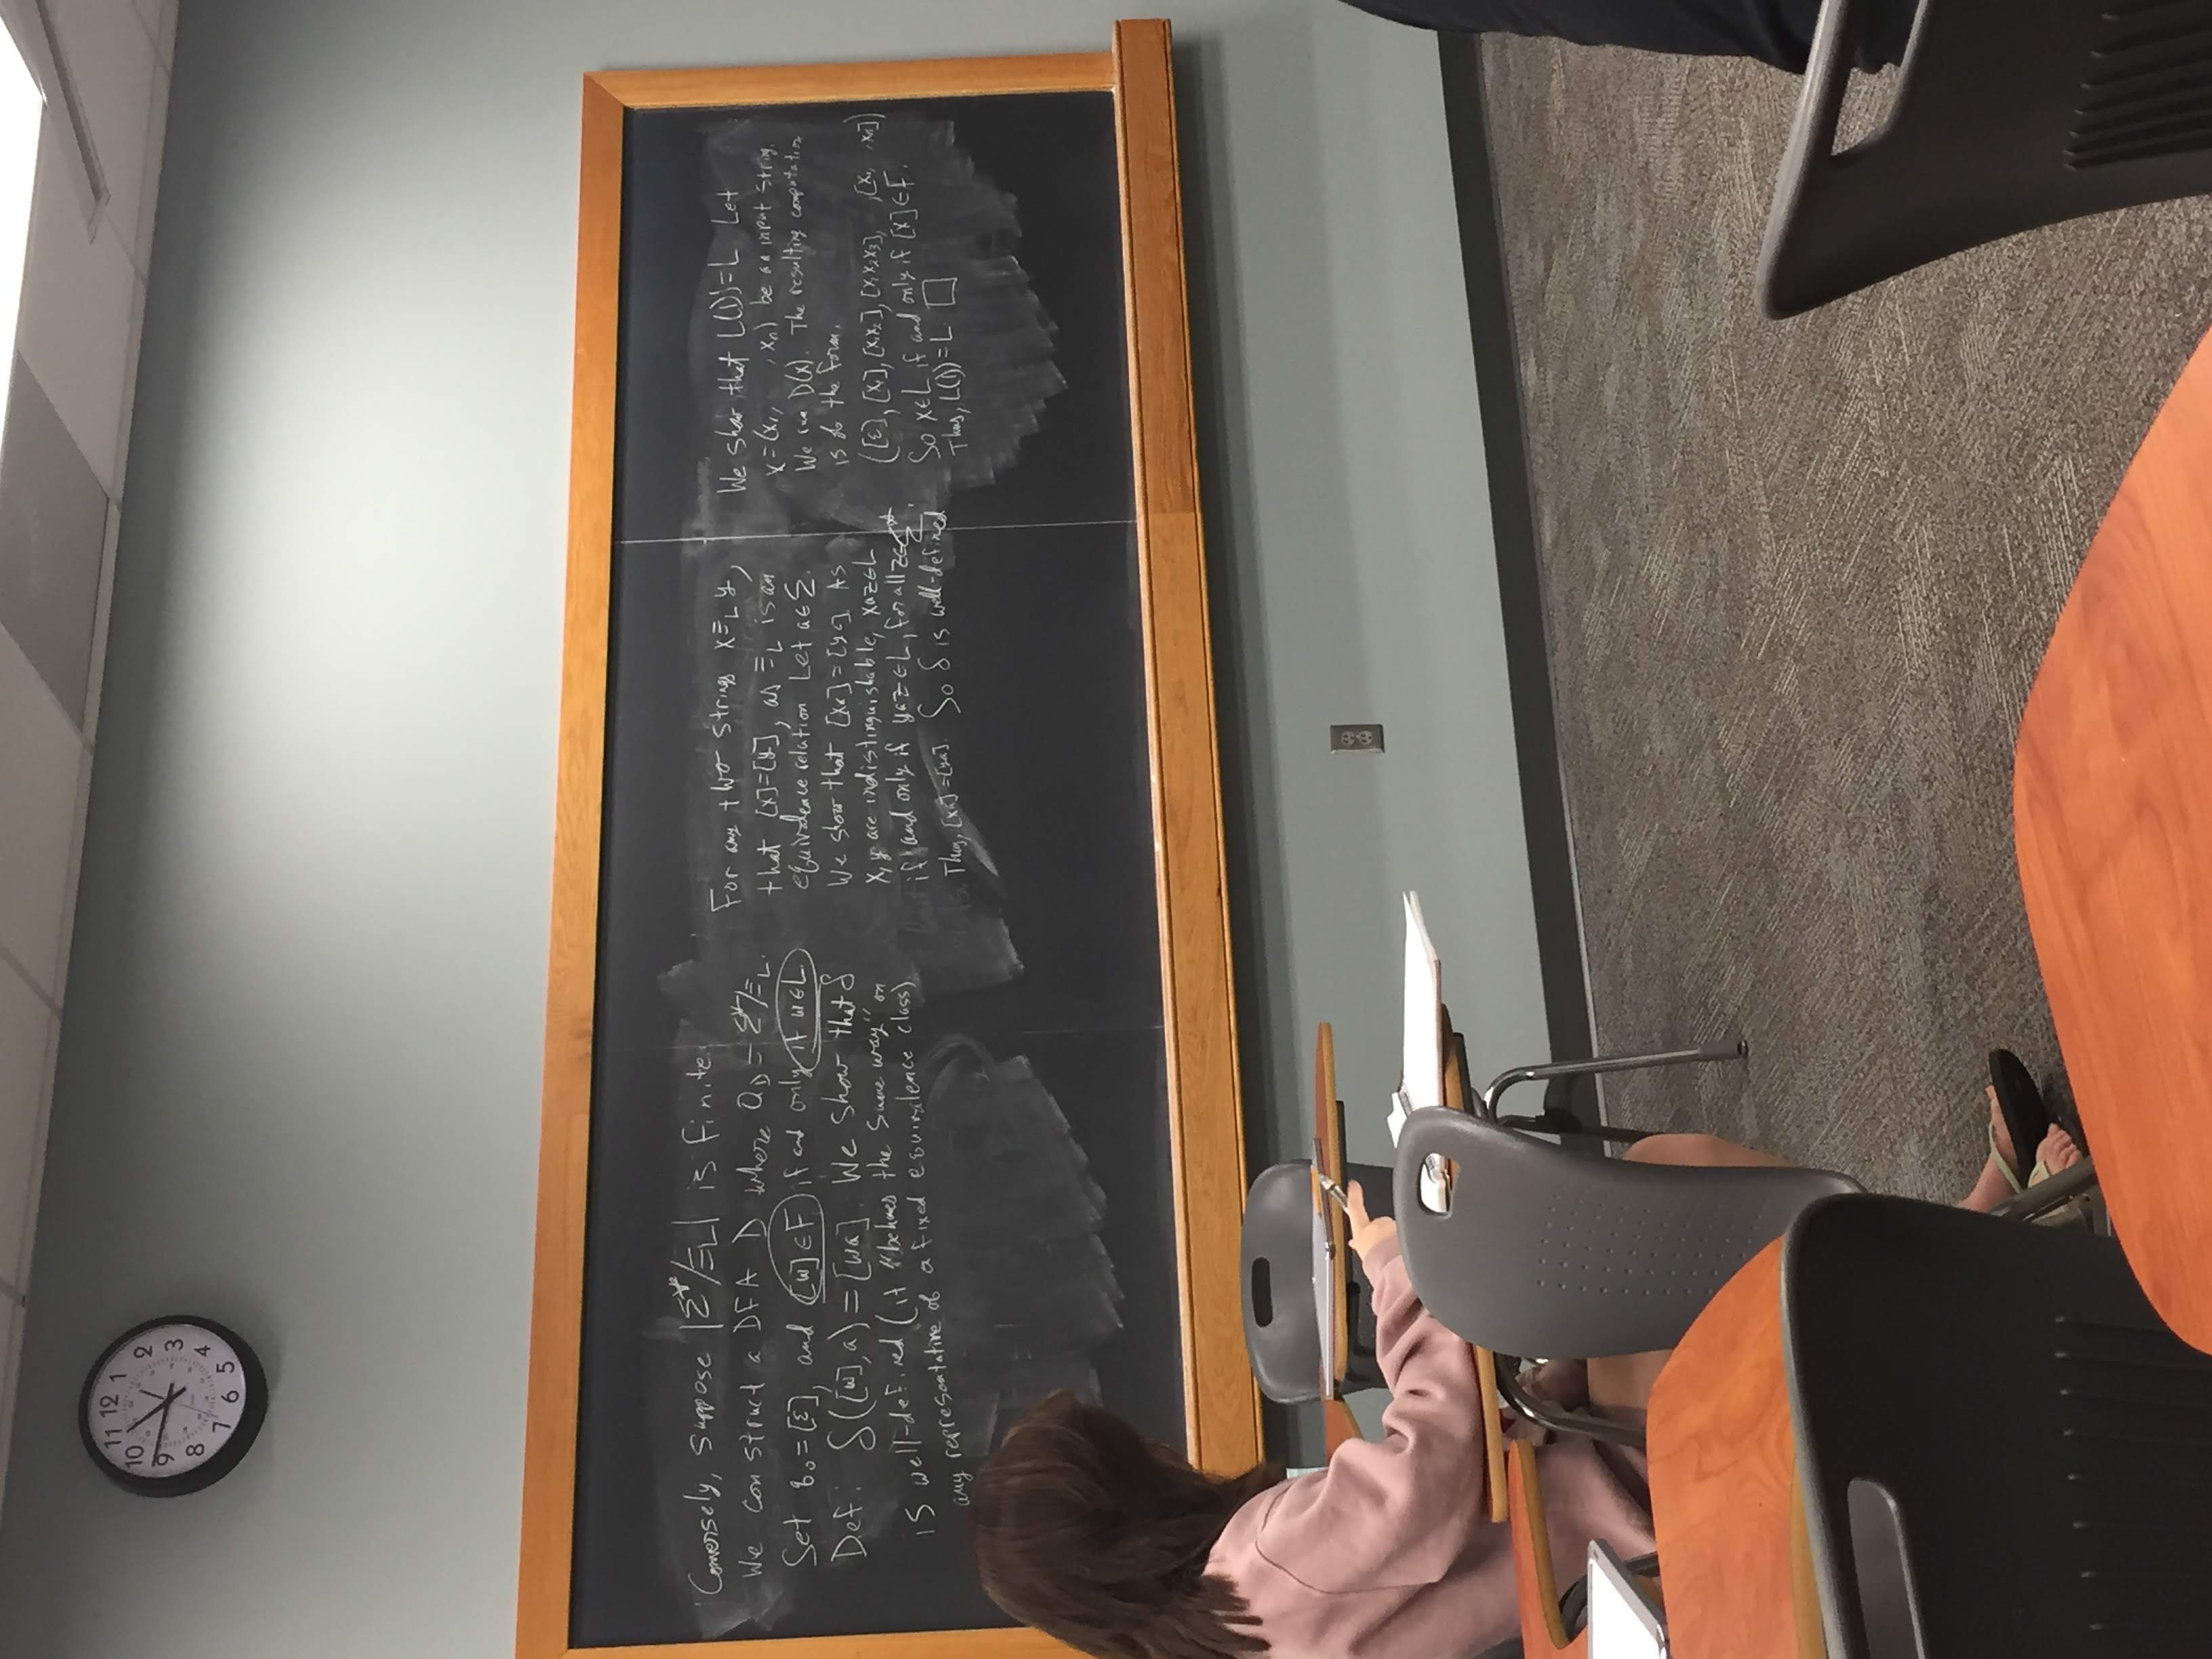 11 12 1
10 2
9 3
8 4
7 6 5
Conversely, suppose |Σ*/≡L| is finite.
We construct a DFA D where QD = Σ*/≡L.
Set q0 = [ε], and [w]∈F if and only if w∈L.
Def: δ([w],a) = [wa]. We show that δ
is well-defined (it "behaves the same way" on
any representative of a fixed equivalence class).
For any two strings x ≡L y,
that [x]=[y], as ≡L is an
equivalence relation Let a∈Σ.
We show that [xa]=[ya]. As
x,y are indistinguishable, xaz∈L
if and only if yaz∈L, for all z∈Σ*.
Thus, [xa]=[ya]. So δ is well-defined
We show that L(D)=L Let
x=(x1, , xn) be an input string.
We run D(x). The resulting computation
is of the form.
([ε], [x1], [x1x2], [x1x2x3], , [x1, , xn])
So x∈L if and only if [x]∈F.
Thus, L(D)=L □